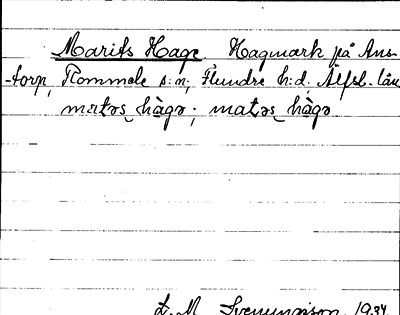 Marits Hage Hagmark på Ans-
-torp, Rommele s:n; Flundre h:d. Älfsb. län
matəs hàgə; matəs hàgə
L. M. Svenungsson. 1934.